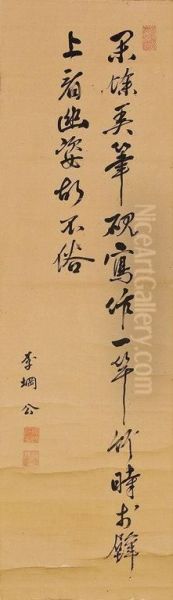 閑餘弄筆硯寫作一竿竹時於壁
上看幽姿故不俗
李堈公
NiceArtGallery.com